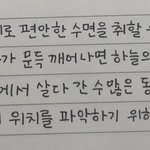 로 편안한 수면을 취할
가 문득 깨어나면 하늘의
에서 살다 간 수많은 동
위치를 파악하기 위하